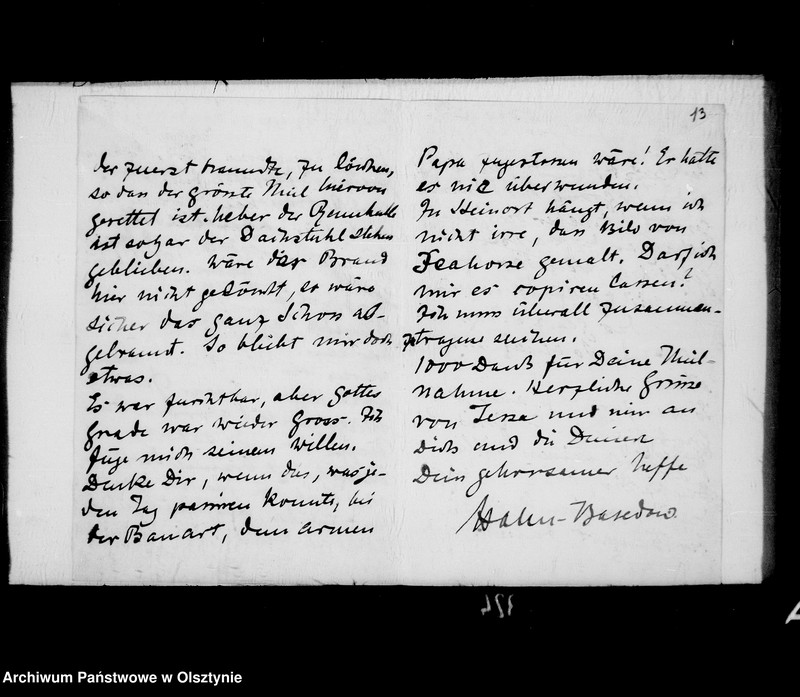 der zuerst brannte, zu löschen,
so dass der grösste Theil hiervon
gerettet ist. Ueber der Rennhalle
ist sogar der Dachstuhl stehen
geblieben. Wäre der Brand
hier nicht gelöscht, so wäre
sicher das ganz Schoss ab-
gebrannt. So bleibt mir doch
etwas.
Es war furchtbar, aber Gottes
Gnade war wieder gross. Ich
füge mich seinem Willen.
Denke Dir, wenn das, was je-
den Tag passiren konnte, bei
der Bauart, dem armen
13
Papa zugestossen wäre! Er hätte
es nie überwunden.
In Steinort hängt, wenn ich
nicht irre, das Bild von
gemalt. Darf ich
mir es copiren lassen?
Ich muss überall zusammen-
zutragen suchen.
1000 Dank für Deine Theil-
nahme. Herzliche Grüsse
von und mir an
Dich und die Deinen
Dein gehorsamer Neffe
Hahn-Basedow
324
Archiwum Państwowe w Olsztynie